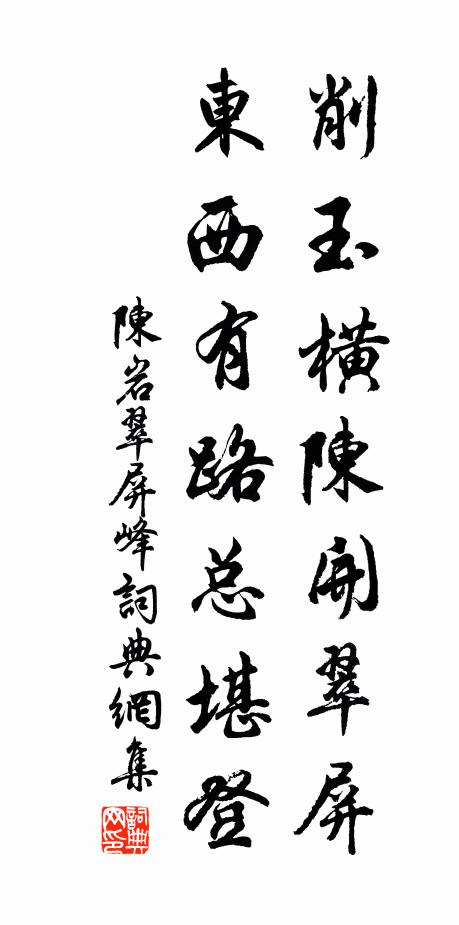 削玉橫陳開翠屏
東西有路总堪登
陳岩翠屏峰詞典網集
詞典网印